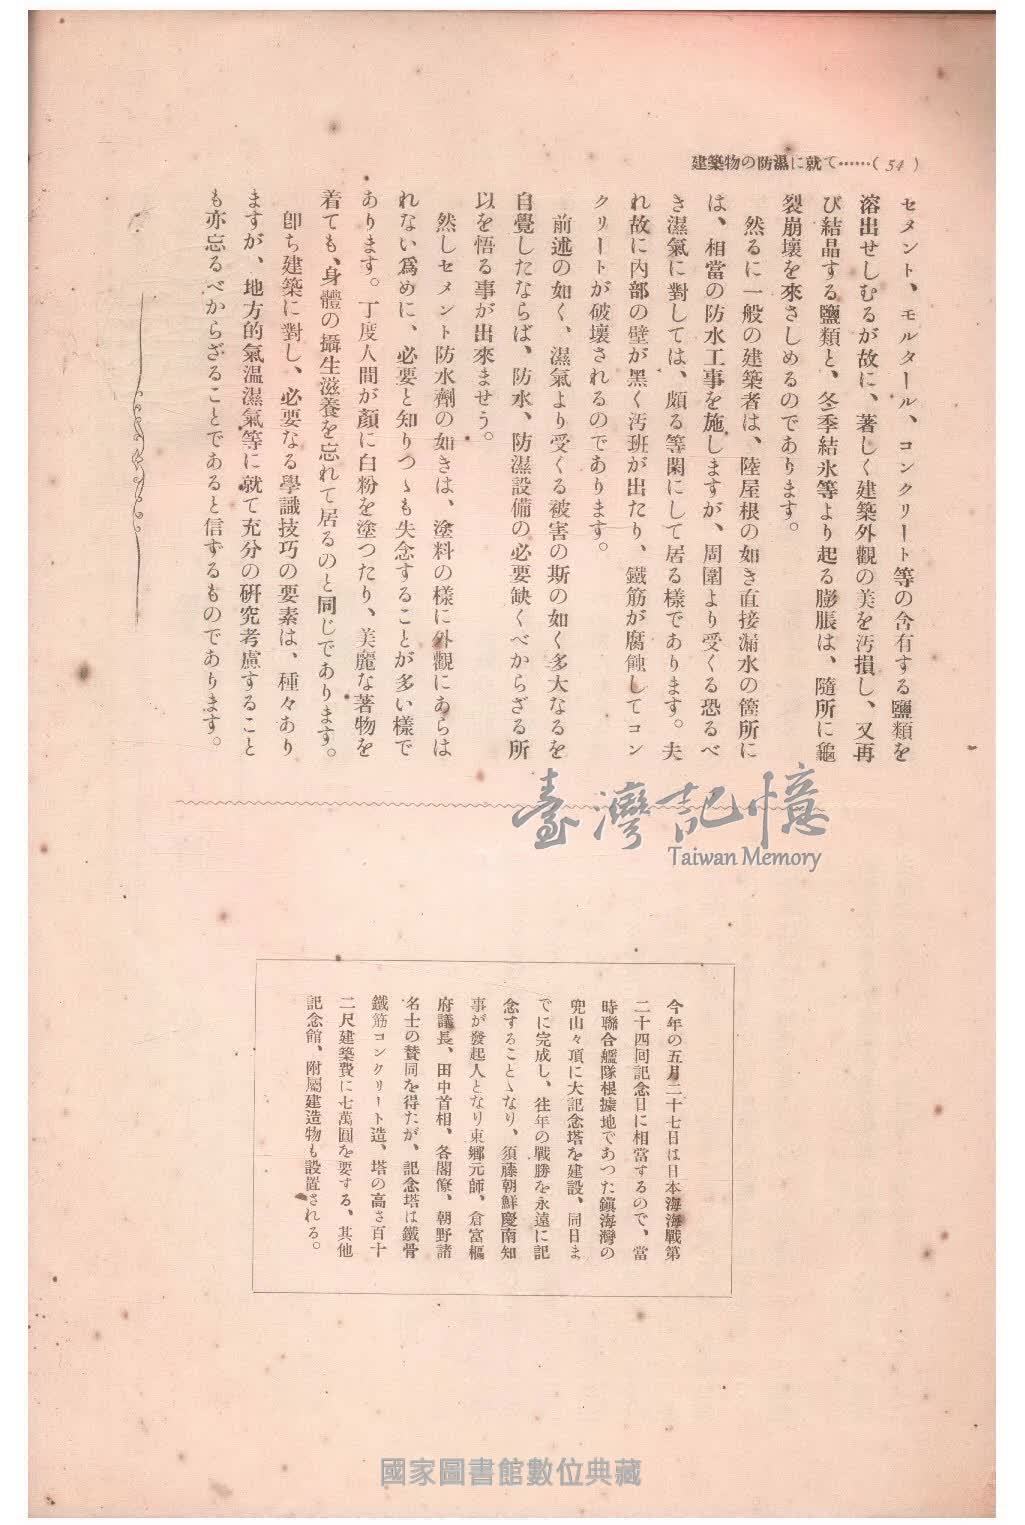 建築物の防濕に就て……( 54 )
セメント、モルタール、コンクリート等の含有する鹽類を
溶出せしむるが故に、著しく建築外觀の美を汚損し、又再
び結晶する鹽類と、冬季結氷等より起る膨脹は、隨所に龜
裂崩壞を來さしめるのであります。
然るに一般の建築者は、陸屋根の如き直接漏水の箇所に
は、相當の防水工事を施しますが、周圍より受くる恐るべ
き濕氣に對しては、頗る等閑にして居る樣であります。夫
れ故に內部の壁が黑く汚班が出たり、鐵筋が腐蝕してコン
クリートが破壞されるのであります。
前述の如く、濕氣より受くる被害の斯の如く多大なるを
自覺したならば、防水、防濕設備の必要缺くべからざる所
以を悟る事が出來ませう。
然しセメント防水劑の如きは、塗料の樣に外觀にあらは
れない爲めに、必要と知りつゝも失念することが多い樣で
あります。丁度人間が顏に白粉を塗つたり、美麗な著物を
着ても、身體の攝生滋養を忘れて居るのと同じであります。
卽ち建築に對し、必要なる學識技巧の要素は、種々あり
ますが、地方的氣溫濕氣等に就て充分の硏究考慮すること
も亦忘るべからざることであると信ずるものであります。
臺灣記憶
Taiwan Memory
今年の五月二十七日は日本海海戰第
二十四回記念日に相當するので、當
時聯合艦隊根據地であつた鎭海灣の
兜山々頂に大記念塔を建設、同日ま
でに完成し、往年の戰勝を永遠に記
念することゝなり、須藤朝鮮慶南知
事が發起人となり東鄕元師、倉富樞
府議長、田中首相、各閣僚、朝野諸
名士の賛同を得たが、記念塔は鐵骨
鐵筋コンクリート造、塔の高さ百十
二尺建築費に七萬圓を要する、其他
記念館、附屬建造物も設置される。
國家圖書館數位典藏